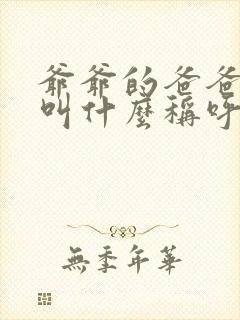 爺爺的爸爸
叫什麼稱呼
無季年華